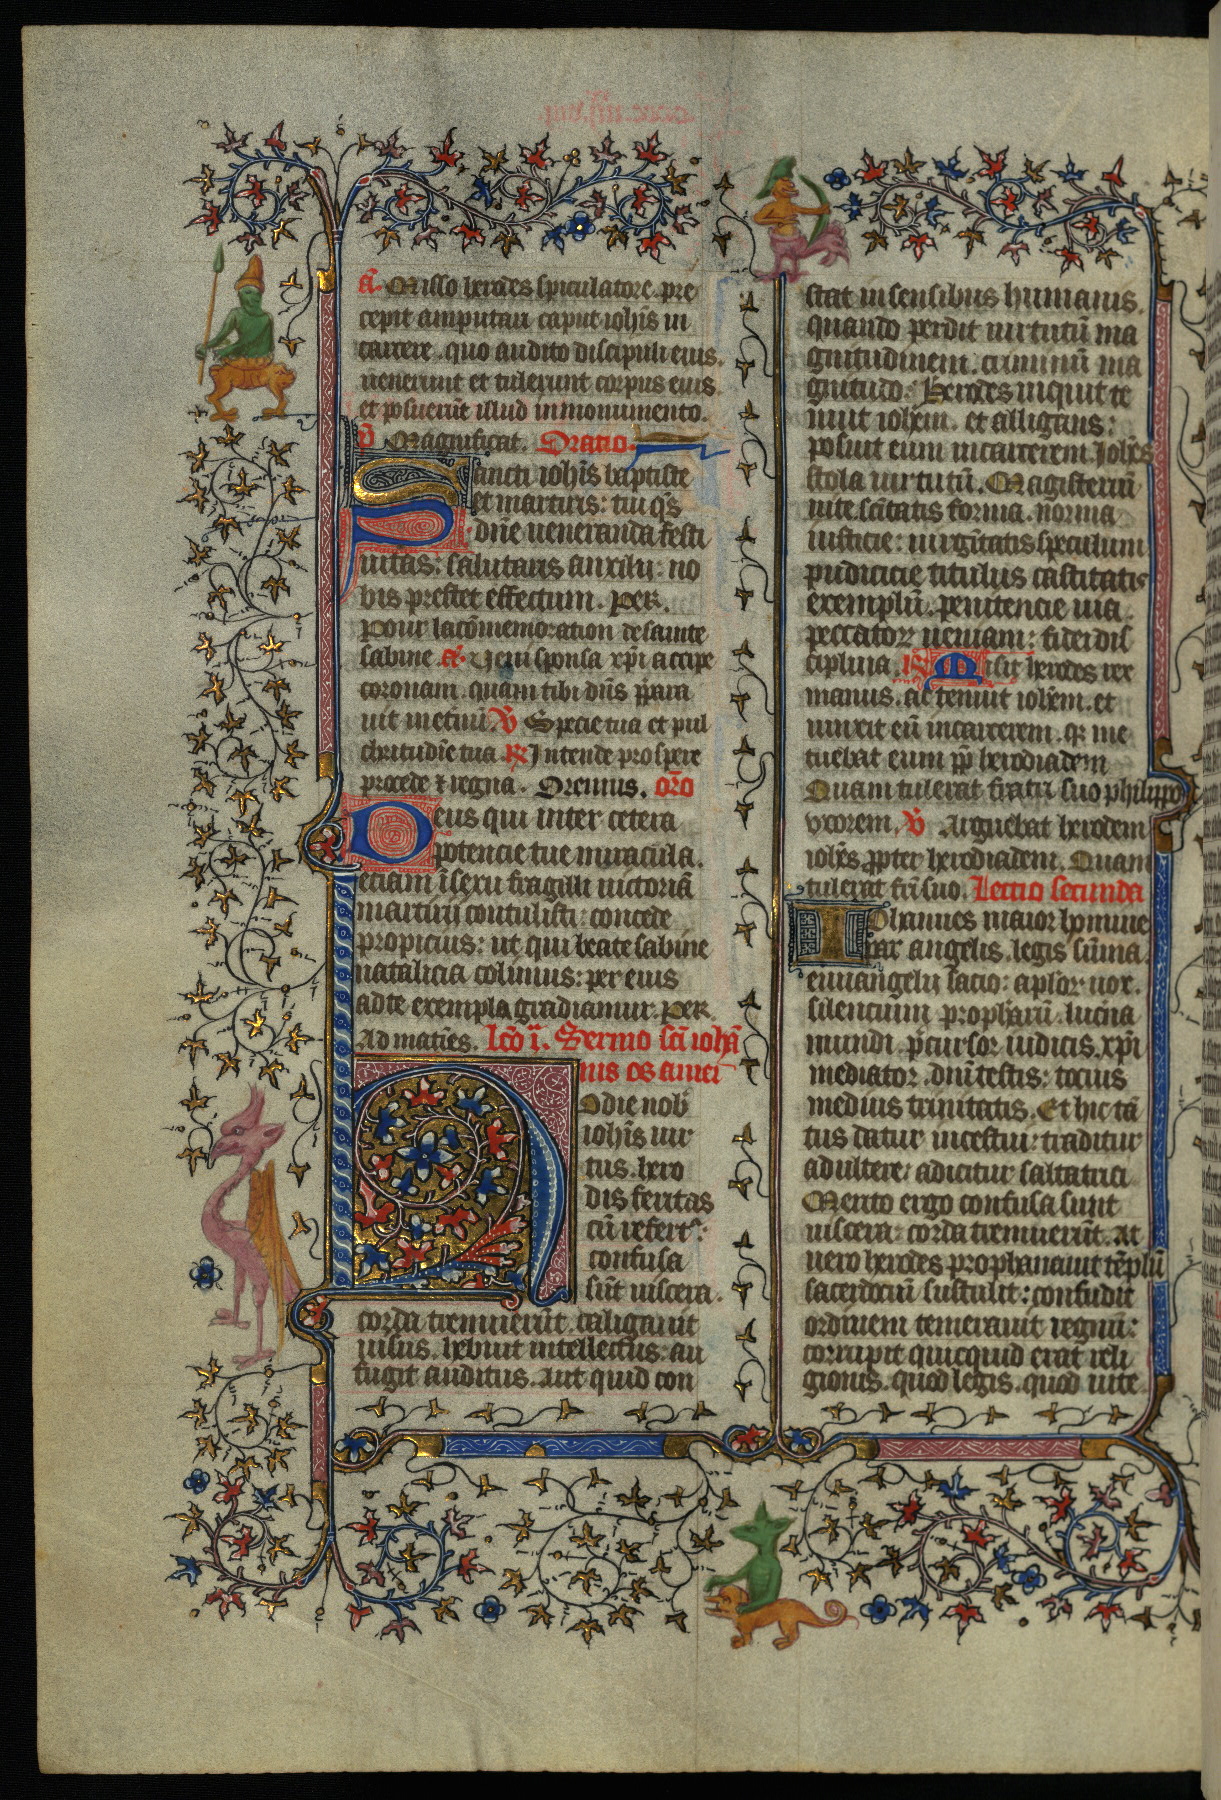 a. Misso herodes spiculatore pre
cepit amputari caput ioh̄is in
carcere. quo audito discipuli eius.
uenerunt et tulerunt corpus eius.
et posuerūt illud in monumento.
p̄ Magnificat. Oratio.
Sancti ioh̄is baptiste
et martiris: tui q̄s
dn̄e ueneranda festi
uitas: salutaris auxilii: no
bis prestet effectum. per.
Pour la cōmemoration de sainte
sabine a. Veni sponsa xp̄i accipe
coronam. quam tibi dn̄s p̄para
uit in et̄nū. v̄ Specie tua et pul
chritudīe tua R̄ Intende prospere
procede ⁊ regna. Oremus. or̄o
Deus qui inter cetera
potencie tue miracula.
eciam ī sexu fragili uictoriā
martirii contulisti: concede
propicius: ut qui beate sabine
natalicia colimus: per eius
ad te exempla gradiamur. per
Ad mat̄ies. lc̄o i. Sermo sc̄i ioha̅
nis os aurei
Hodie nob̄
ioh̄is uir
tus. hero
dis feritas
cū refert:
confusa
sūt uiscera.
corda tremuerūt. caligauit
uisus. hebuit intellectus: au
fugit auditus. Aut quid con
stat in sensibus humanis.
quando perdit uirtutū ma
gnitudinem. criminū ma
gnitudo. Herodes inquit te
nuit ioh̄em. et alligans:
posuit eum in carcerem. Ioh̄es
scola uirtutū. Magisterium
uite. sc̄itatis forma. norma
iusticie: uirgīitatis speculum
pudicicie titulus castitatis
exemplū. penitencie uia.
peccatoꝝ ueniam: fidei dis
ciplina. R̄ Misit herodes rex
manus. ac tenuit ioh̄em. et
uinxit eū in carcerem. qꝛ me
tuebat eum pp̄ herodiadem
Quam tulerat fratri suo philippo
vxorem. v̄ Arguebat herodem
ioh̄es ꝓpter herodiadem. Quam
tulerat fr̄i suo. Lectio secunda
Iohannes maior homine
par angelis. legis sūma.
euuangelii sacio: ap̄loꝝ uox.
silencium prophetarū. lucerna
mundi p̄cursor iudicis. xp̄i
mediator. dn̄i testis: tocius
medius trinitatis. Et hic tā
tus datur incestui: traditur
adultere: adicitur saltatrici
Merito ergo confusa sunt
uiscera: corda tremuerūt. At
uero herodes prophanauit tēplū
sacerdociū sustulit: confudit
ordinem temerauit regnū:
corrupit quicquid erat reli
gionis. quod legis. quod uite